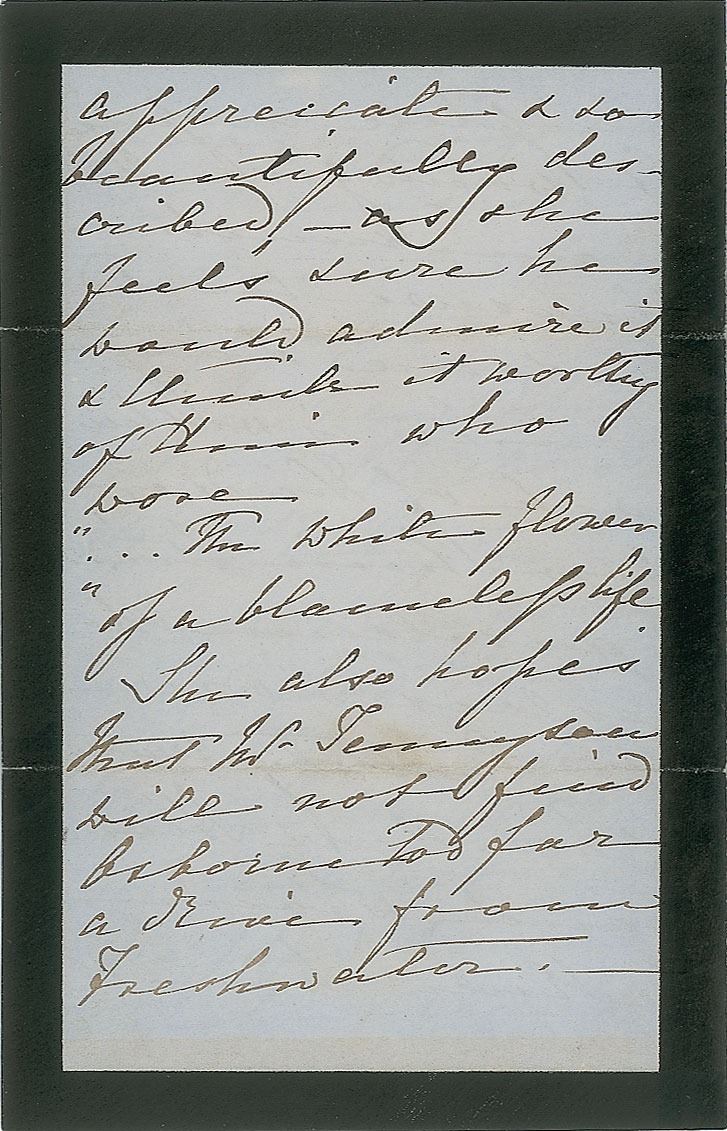 appreciate & so
beautifully des-
cribed, – as she
feels sure he
would admire it
& think it worthy
of Him who
wore
"... The white flower
"of a blameless life
She also hopes
that Mr. Tennyson
will not find
Osborne too far
a drive from
Freshwater. —